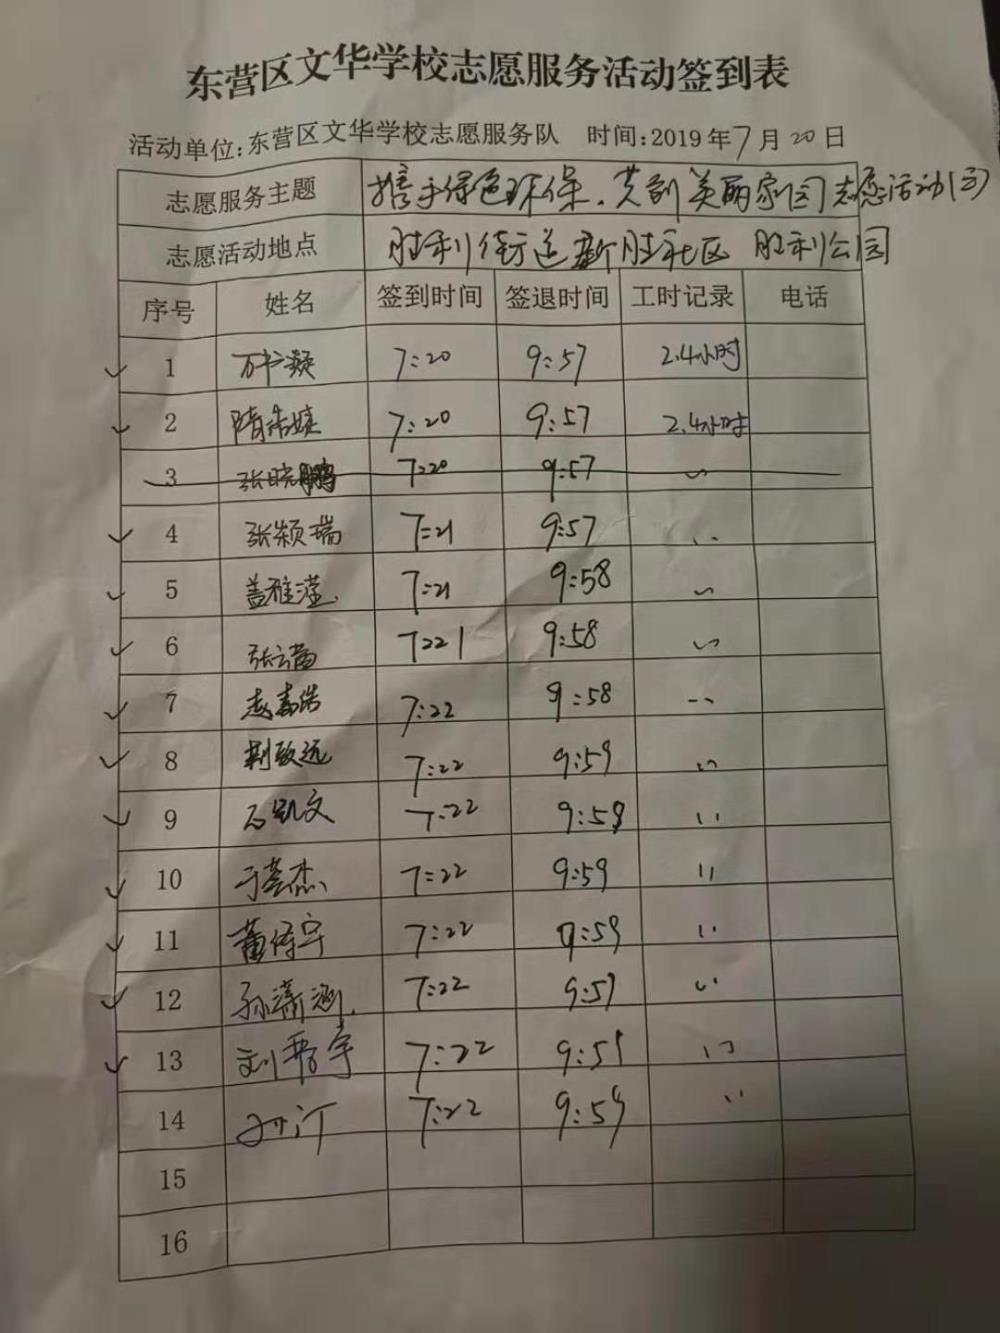 东营区文华学校志愿服务活动签到表
活动单位:东营区文华学校志愿服务队 时间:2019年7月20日
志愿服务主题 携手绿色环保.共创美丽家园志愿活动(三)
志愿活动地点 胜利街道新胜社区 胜利公园
序号 姓名 签到时间 签退时间 工时记录 电话
1 万书凝 7:20 9:57 2.4小时
2 隋浩婕 7:20 9:57 2.4小时
3 张晓鹏 7:20 9:57
4 张颖瑞 7:21 9:57
5 盖雅滢 7:21 9:58
6 张云茜 7:21 9:58
7 赵嘉浩 7:22 9:58
8 荆致远 7:22 9:59
9 石凯文 7:22 9:59
10 于荟杰 7:22 9:59
11 董倚宇 7:22 9:59
12 孙潇涵 7:22 9:59
13 刘晋宇 7:22 9:59
14 孙汀 7:22 9:59
15
16